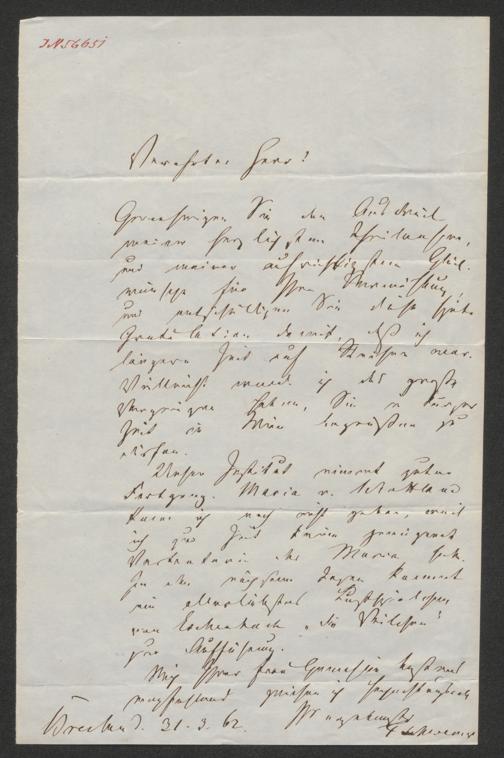 IN 56651
Verehrter Herr!
Genehmigen Sie den Ausdruck
meiner herzlichsten Theilnahme,
und meiner aufrichtigsten Glück-
wünsche für Ihre Vermählung,
und entschuldigen Sie diese späte
Gratulation damit, daß ich
längere Zeit auf Reisen war.
Vielleicht werde ich das große
Vergnügen haben, Sie in kurzer
Zeit in Wien begrüßen zu
dürfen.
Unser Institut nimmt guten
Fortgang. Maria v. Schottland
kann ich noch nicht geben, weil
ich zur Zeit keine geeignete
Vertreterin der Maria habe.
In den nächsten Tagen kommt
ein allerliebstes Lustspielchen
von Eschenbach „die Veilchen"
zur Aufführung.
Mich Ihrer Frau Gemahlin bestens
empfehlend zeichne ich hochachtungsvoll
Ihr ergebenster
31. 3. 62.